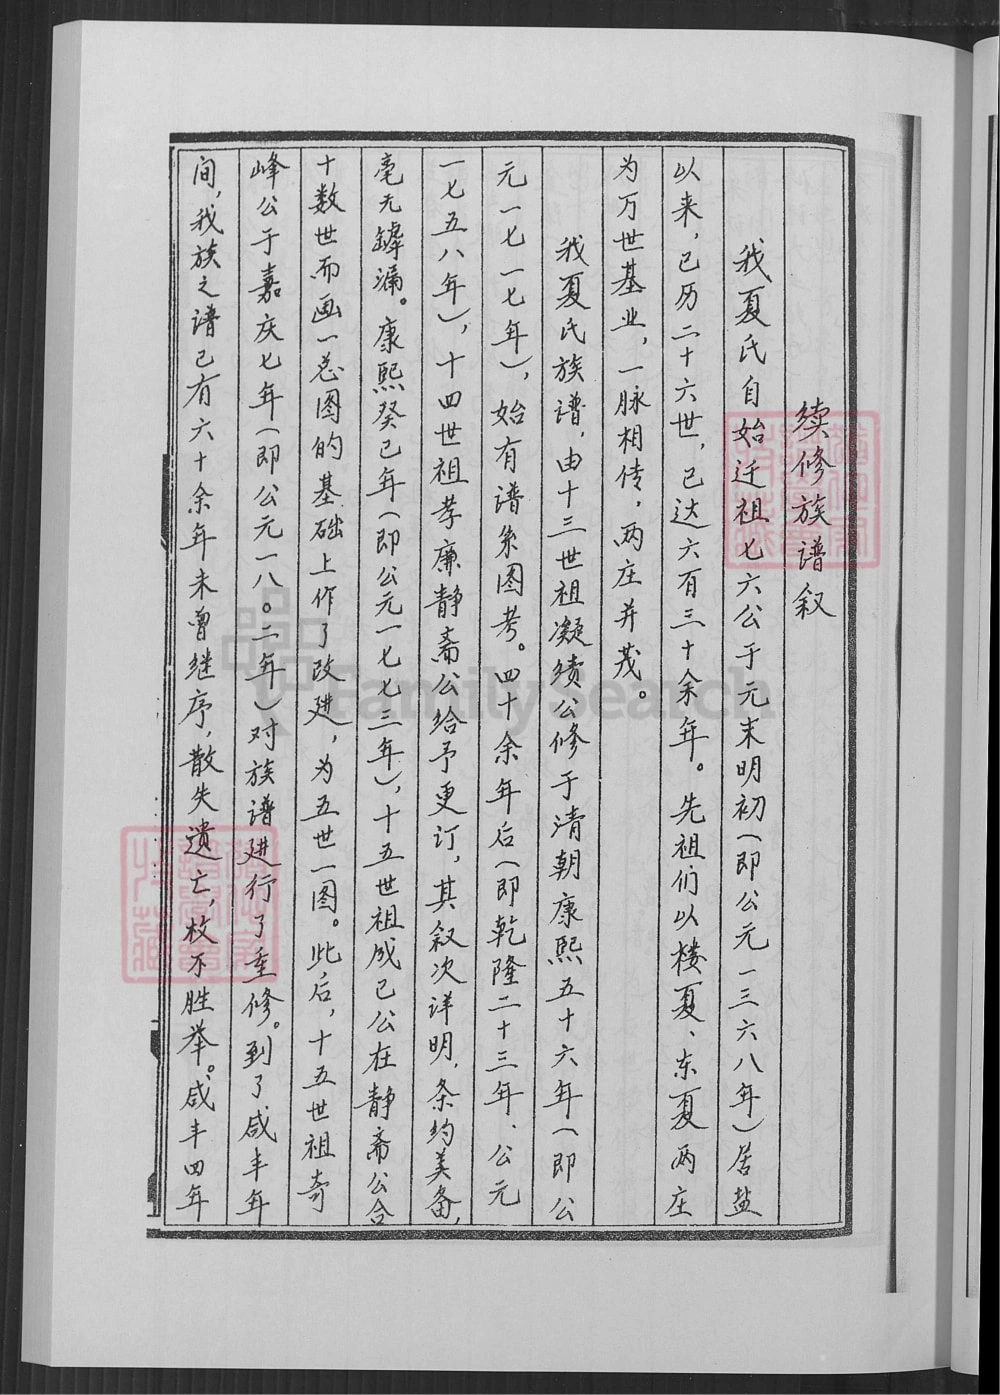 续修族谱叙
我夏氏自始迁祖七六公于元末明初(即公元一三六八年)居盐
以来，已历二十六世，已达六百三十余年。先祖们以楼夏、东夏两庄
为万世基业，一脉相传，两庄并茂。
我夏氏族谱，由十三世祖凝绩公修于清朝康熙五十六年(即公
元一七一七年)，始有谱系图考。四十余年后(即乾隆二十三年、公元
一七五八年)，十四世祖孝廉静斋公给予更订，其叙次详明，条约美备，
毫无罅漏。康熙癸巳年(即公元一七七三年)，十五世祖成己公在静斋公合
十数世而画一总图的基础上作了改进，为五世一图。此后，十五世祖奇
峰公于嘉庆七年(即公元一八〇二年)对族谱进行了重修。到了咸丰年
间，我族之谱已有六十余年未曾继序，散失遗亡，枚不胜举。咸丰四年
FamilySearch